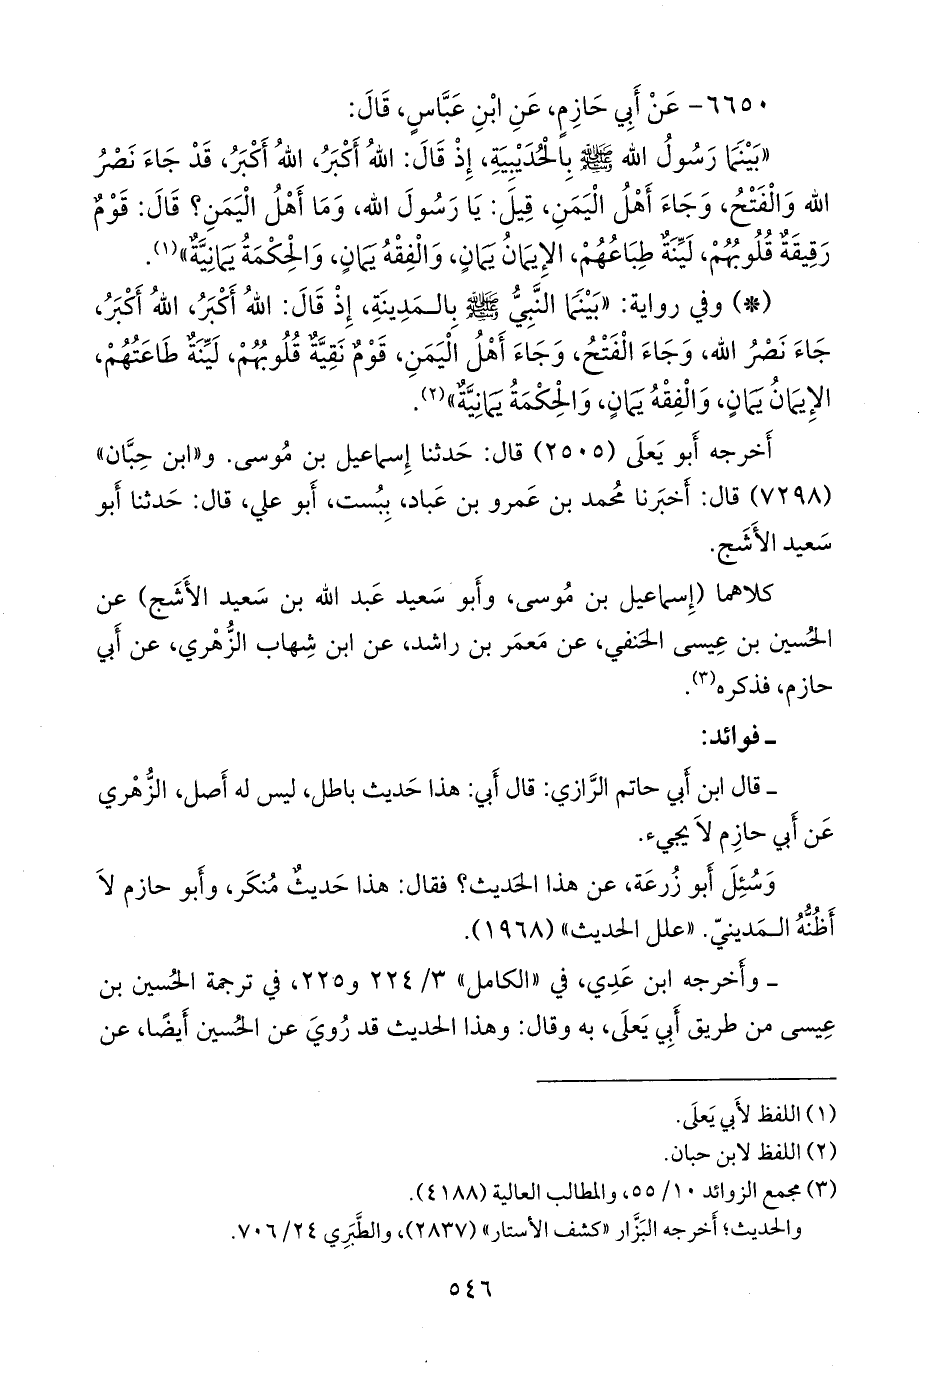 ٦٦٥٠- عَنْ أَبِي حَازِمٍ، عَنِ ابْنِ عَبَّاسٍ، قَالَ:
«بَيْنَمَا رَسُولُ الله ﷺ بِالْحُدَيْبِيَةِ، إِذْ قَالَ: اللهُ أَكْبَرُ، اللهُ أَكْبَرُ، قَدْ جَاءَ نَصْرُ
الله وَالْفَتْحُ، وَجَاءَ أَهْلُ الْيَمَنِ، قِيلَ: يَا رَسُولَ الله، وَمَا أَهْلُ الْيَمَنِ؟ قَالَ: قَوْمٌ
رَقِيقَةٌ قُلُوبُهُمْ، لَيِّنَةٌ طِبَاعُهُمْ، الإِيمَانُ يَمَانٍ، وَالْفِقْهُ يَمَانٍ، وَالْحِكْمَةُ يَمَانِيَّةٌ»(١).
(*) وفي رواية: «بَيْنَمَا النَّبِيُّ ﷺ بِالْمَدِينَةِ، إِذْ قَالَ: اللهُ أَكْبَرُ، اللهُ أَكْبَرُ،
جَاءَ نَصْرُ الله، وَجَاءَ الْفَتْحُ، وَجَاءَ أَهْلُ الْيَمَنِ، قَوْمٌ نَقِيَّةٌ قُلُوبُهُمْ، لَيِّنَةٌ طَاعَتُهُمْ،
الإِيمَانُ يَمَانٍ، وَالْفِقْهُ يَمَانٍ، وَالْحِكْمَةُ يَمَانِيَّةٌ»(٢).
أَخرجه أَبو يَعلَى (٢٥٠٥) قال: حَدثنا إِسماعيل بن مُوسى. و«ابن حِبَّان»
(٧٢٩٨) قال: أَخبَرنا مُحمد بن عَمرو بن عَباد، بِبُست، أَبو علي، قال: حَدثنا أَبو
سَعيد الأَشَج.
كلاهما (إِسماعيل بن مُوسى، وأَبو سَعيد عَبد الله بن سَعيد الأَشَج) عن
الحُسين بن عِيسى الحَنفي، عن مَعمَر بن راشد، عن ابن شِهاب الزُّهْري، عن أَبي
حازم، فذكره(٣).
ـ فوائد:
ـ قال ابن أَبي حاتم الرَّازي: قال أَبي: هذا حَديث باطل، ليس له أَصل، الزُّهْري
عَن أَبي حازِم لاَ يجيء.
وَسُئِلَ أَبو زُرعَة، عن هذا الحَديث؟ فقال: هذا حَديثٌ مُنكَر، وأَبو حازم لاَ
أَظُنُّهُ الـمَدينيّ. «علل الحديث» (١٩٦٨).
ـ وأَخرجه ابن عَدِي، في «الكامل» ٣/ ٢٢٤ و٢٢٥، في ترجمة الحُسين بن
عِيسى من طريق أَبِي يَعلَى، به وقال: وهذا الحديث قد رُويَ عن الحُسين أَيضًا، عن
(١) اللفظ لأَبي يَعلَى.
(٢) اللفظ لابن حبان.
(٣) مجمع الزوائد ١٠/ ٥٥، والمطالب العالية (٤١٨٨).
والحديث؛ أَخرجه البَزَّار «كشف الأستار» (٢٨٣٧)، والطَّبَرِي ٢٤/ ٧٠٦.
٥٤٦